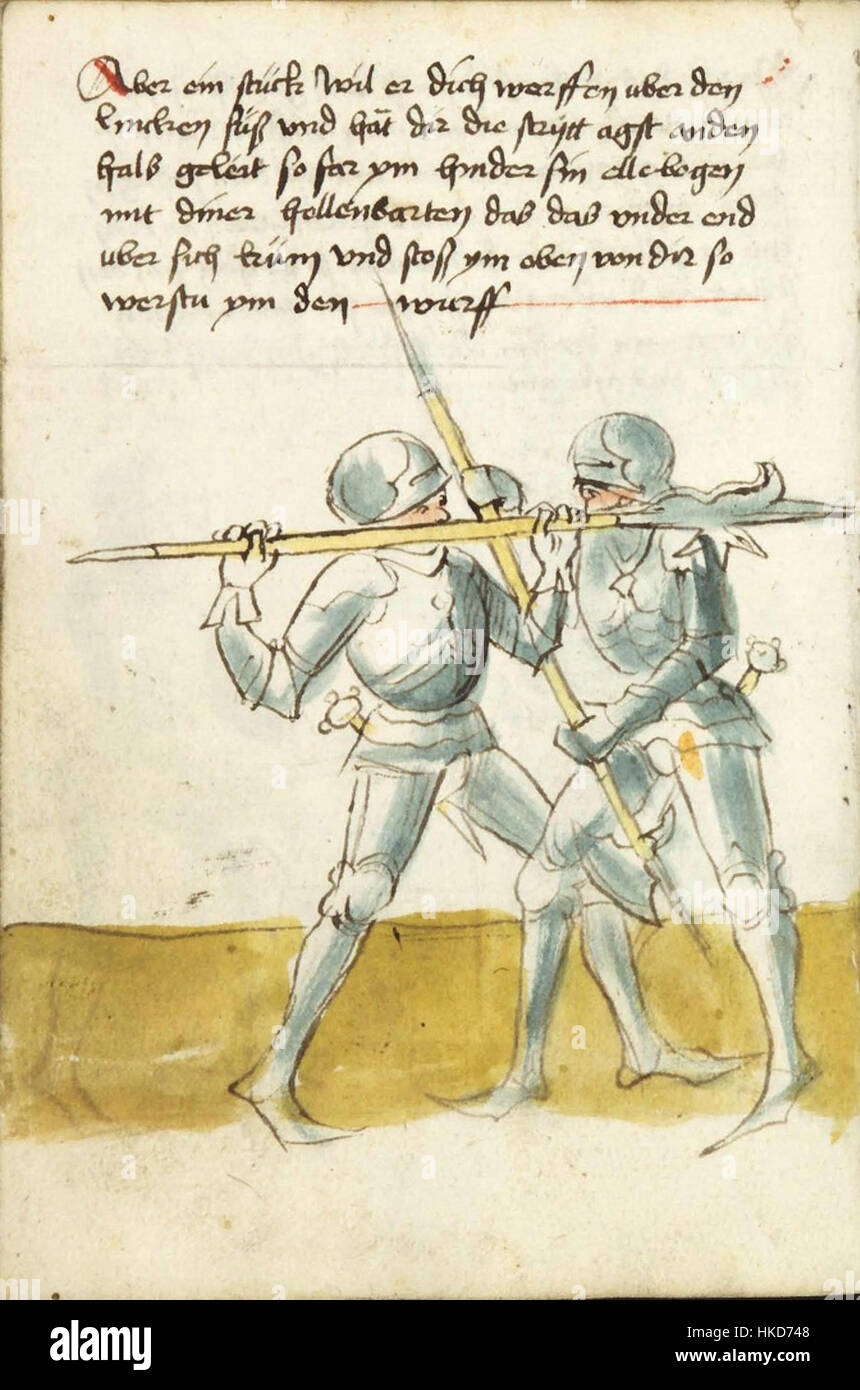 Aber ein stück wil er dich werffen uber den
lincken fůß und hat dir die strytt agst an den
hals geleit so far ym hinder sin ellebogen
mit diner hellenbarten das das under end
uber sich küm und stoß ym oben von dir so
werstu ym den wurff
alamy
Image ID: HKD748
www.alamy.com